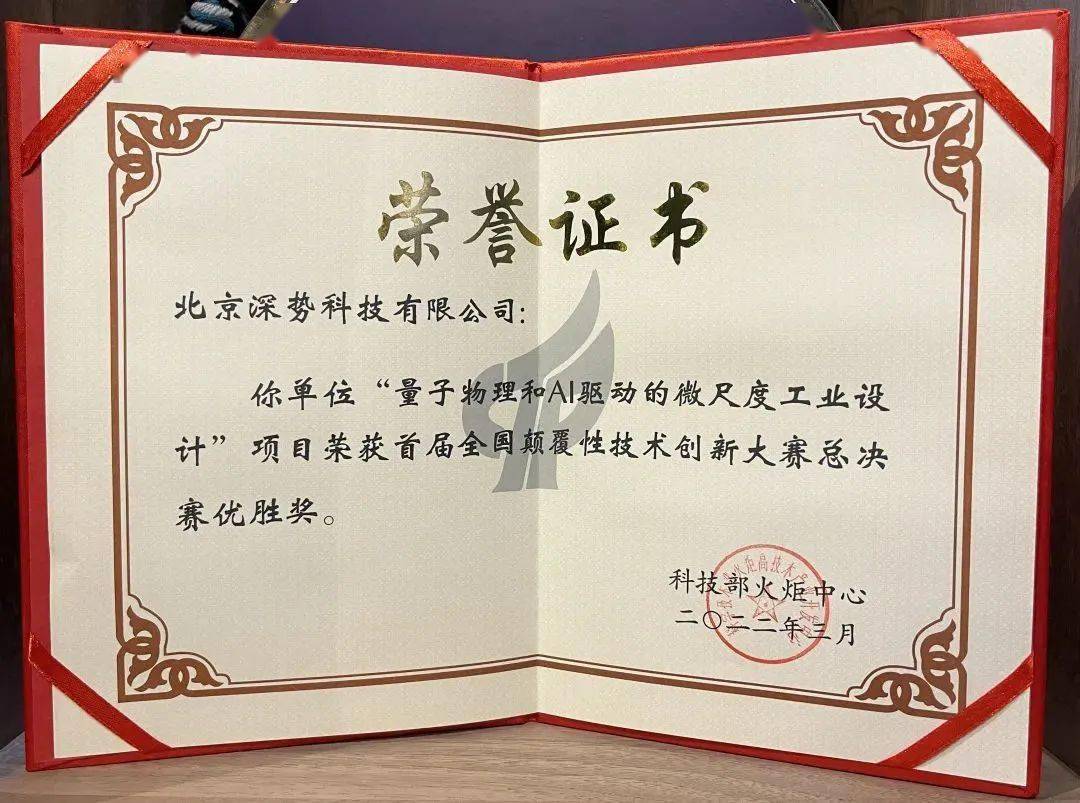 荣誉证书
北京深势科技有限公司：
你单位“量子物理和AI驱动的微尺度工业设
计”项目荣获首届全国颠覆性技术创新大赛总决
赛优胜奖。
科技部火炬中心
二〇二二年三月